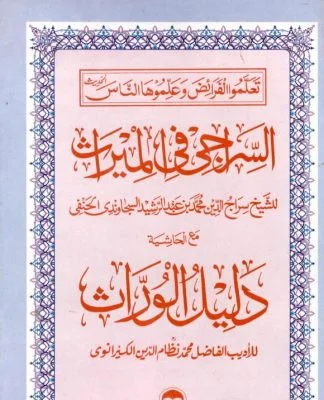 تعلموا الفرائض وعلموها الناس الحديث
السراجي في الميراث
للشيخ سراج الدين محمد بن عبد الرشيد السجاوندي الحنفي
مع الحاشية
دليل الوراث
للأديب الفاضل محمد نظام الدين الكيرانوي